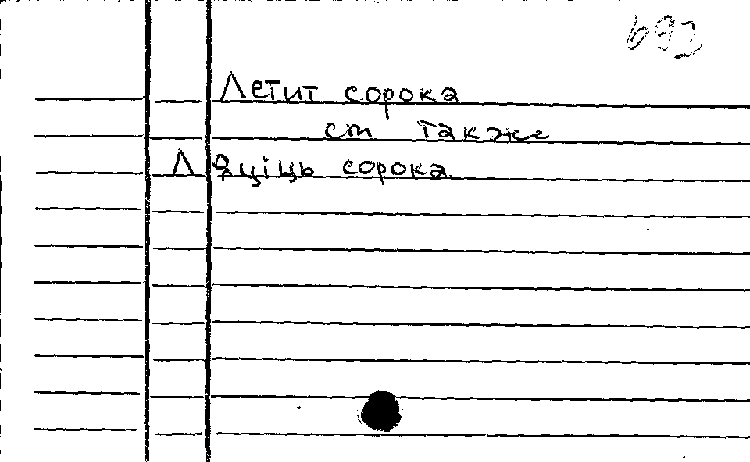 693
Летит сорока
cm также
Л Яціць сорока